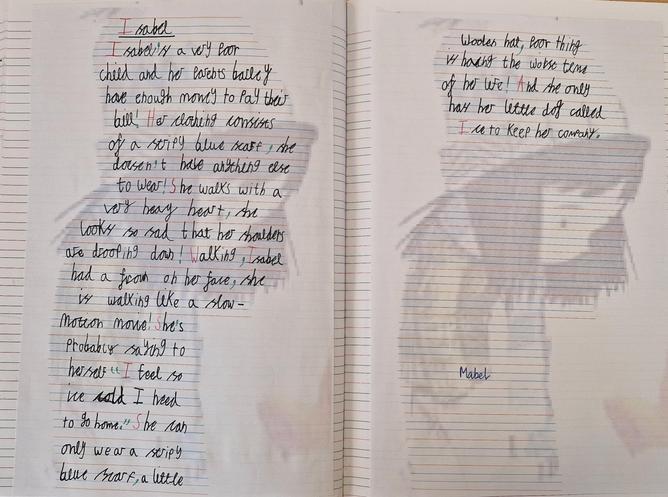 Isabel
Isabel's a very poor
child and her parents barley
have enough money to pay their
bill! Her clothing consises
of a scripy blue scarf, she
doesn't have anything else
to wear! She walks with a
very heavy heart, she
looks so sad that her shoulders
are drooping down! Walking, Isabel
had a frown on her face, she
is walking like a slow-
motion movie! She's
probably saying to
herself "I feel so
ice cold I need
to go home." She can
only wear a scripy
blue scarf, a little
woolen hat, poor thing
is having the worse time
of her life! And she only
has her little dog called
Ice to keep her company.
Mabel